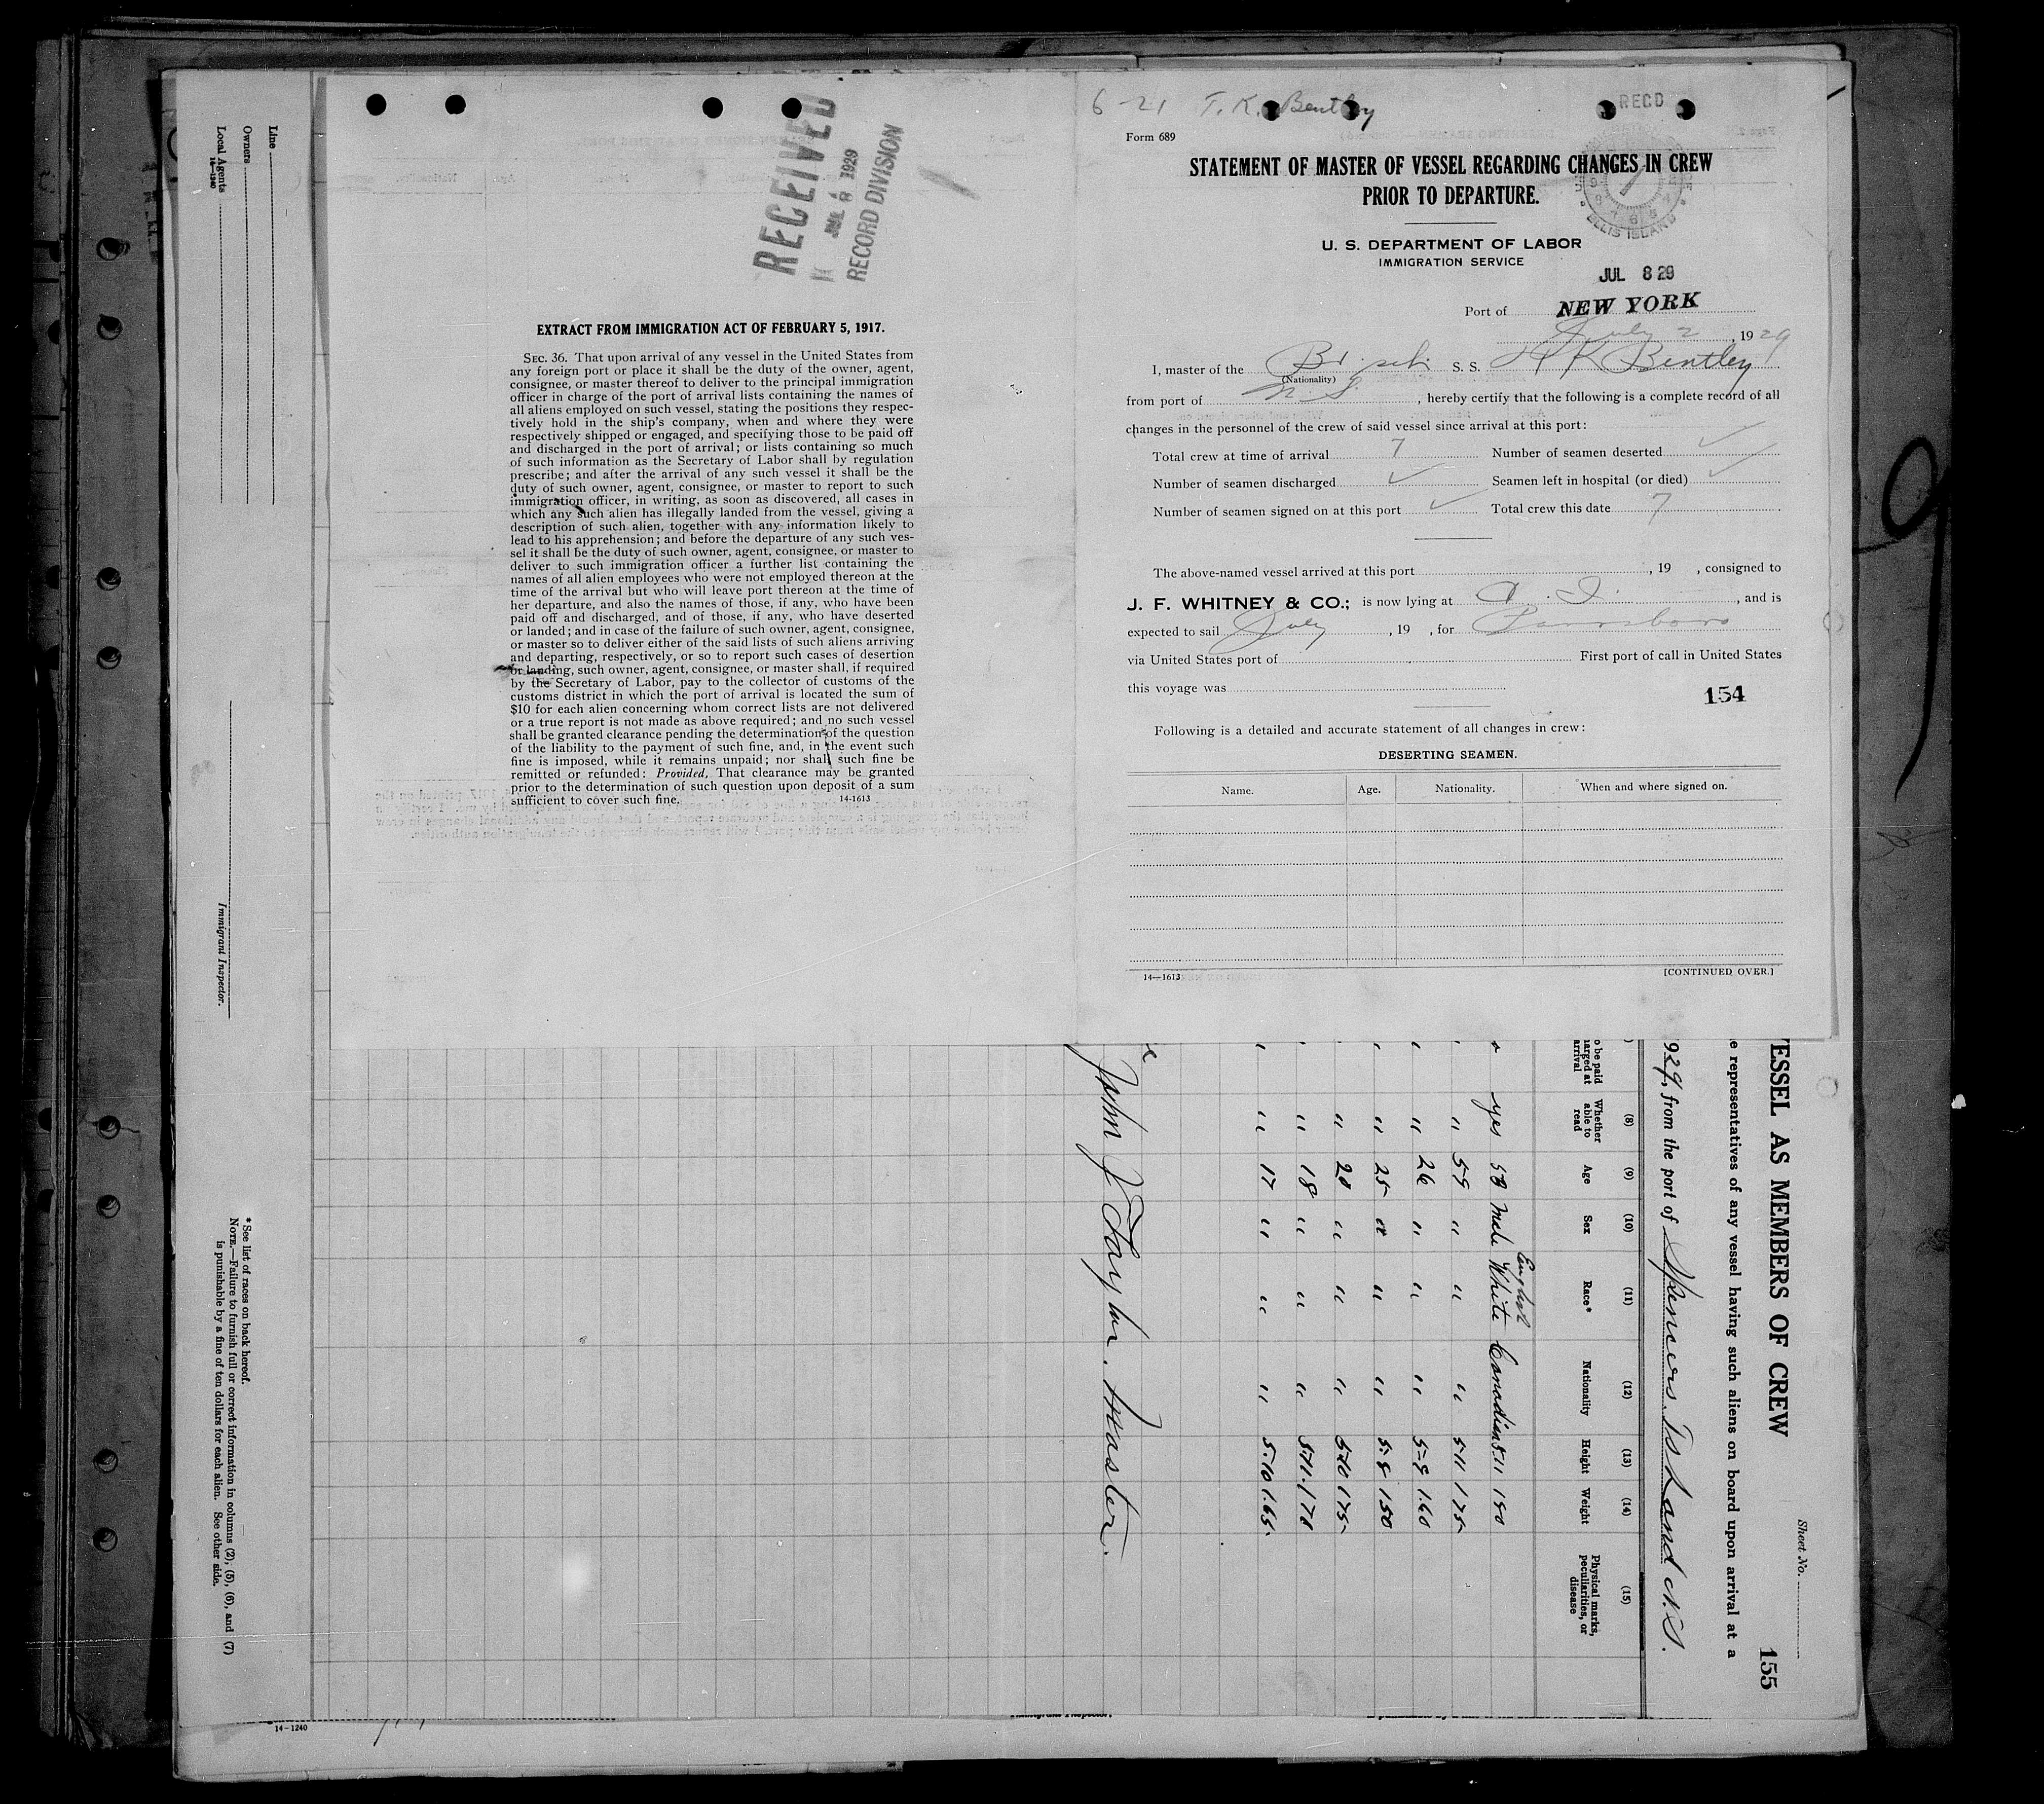 6-21 T. K. Bentley
RECD
Form 689
STATEMENT OF MASTER OF VESSEL REGARDING CHANGES IN CREW
PRIOR TO DEPARTURE.
ELLIS ISLAND
U. S. DEPARTMENT OF LABOR
IMMIGRATION SERVICE
JUL 8 29
Port of NEW YORK
July 2, 1929
I, master of the Br sch S. S. K Bentley
(Nationality)
from port of N S, hereby certify that the following is a complete record of all
changes in the personnel of the crew of said vessel since arrival at this port:
Total crew at time of arrival 7 Number of seamen deserted ✓
Number of seamen discharged ✓ Seamen left in hospital (or died) ✓
Number of seamen signed on at this port ✓ Total crew this date 7
The above-named vessel arrived at this port, 19 , consigned to
J. F. WHITNEY & CO.; is now lying at , and is
expected to sail July, 19 , for Parrsboro
via United States port of First port of call in United States
this voyage was
154
Following is a detailed and accurate statement of all changes in crew:
DESERTING SEAMEN.
Name. Age. Nationality. When and where signed on.
14—1613 [CONTINUED OVER.]
RECEIVED
JUL 8 1929
RECORD DIVISION
EXTRACT FROM IMMIGRATION ACT OF FEBRUARY 5, 1917.
SEC. 36. That upon arrival of any vessel in the United States from
any foreign port or place it shall be the duty of the owner, agent,
consignee, or master thereof to deliver to the principal immigration
officer in charge of the port of arrival lists containing the names of
all aliens employed on such vessel, stating the positions they respec-
tively hold in the ship's company, when and where they were
respectively shipped or engaged, and specifying those to be paid off
and discharged in the port of arrival; or lists containing so much
of such information as the Secretary of Labor shall by regulation
prescribe; and after the arrival of any such vessel it shall be the
duty of such owner, agent, consignee, or master to report to such
immigration officer, in writing, as soon as discovered, all cases in
which any such alien has illegally landed from the vessel, giving a
description of such alien, together with any information likely to
lead to his apprehension; and before the departure of any such ves-
sel it shall be the duty of such owner, agent, consignee, or master to
deliver to such immigration officer a further list containing the
names of all alien employees who were not employed thereon at the
time of the arrival but who will leave port thereon at the time of
her departure, and also the names of those, if any, who have been
paid off and discharged, and of those, if any, who have deserted
or landed; and in case of the failure of such owner, agent, consignee,
or master so to deliver either of the said lists of such aliens arriving
and departing, respectively, or so to report such cases of desertion
or landing, such owner, agent, consignee, or master shall, if required
by the Secretary of Labor, pay to the collector of customs of the
customs district in which the port of arrival is located the sum of
$10 for each alien concerning whom correct lists are not delivered
or a true report is not made as above required; and no such vessel
shall be granted clearance pending the determination of the question
of the liability to the payment of such fine, and, in the event such
fine is imposed, while it remains unpaid; nor shall such fine be
remitted or refunded: Provided, That clearance may be granted
prior to the determination of such question upon deposit of a sum
sufficient to cover such fine. 14-1613
Sheet No.
155
ESSEL AS MEMBERS OF CREW
e representatives of any vessel having such aliens on board upon arrival at a
929, from the port of Spencers Island N.S.
(8) (9) (10) (11) (12) (13) (14) (15)
o be paid
arged at
arrival
Whether
able to
read
Age Sex Race* Nationality Height Weight
Physical marks,
peculiarities, or
disease
English
yes 58 male White Canadian 5.11 180
" 59 " " " 5.11 175
" 26 " " " 5-8 160
" 25 " " " 5-8 150
" 20 " " " 5.10 175
" 18 " " " 5.11 178
" 17 " " " 5.10 165
John J Taylor. Master.
Line
Owners
Local Agents
14—1240
Immigrant Inspector.
* See list of races on back hereof.
NOTE.—Failure to furnish full or correct information in columns (2), (5), (6), and (7)
is punishable by a fine of ten dollars for each alien. See other side.
14-1240